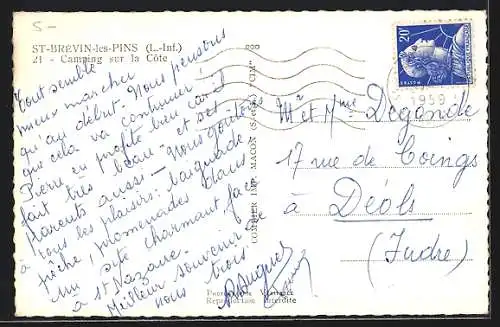 5-
ST-BRÉVIN-les-PINS (L.-Inf.)
21 - Camping sur la Côte
Tout semble
mieux marcher
qu'au début. Nous pensons
que cela va continuer !
Pierre en profite bien car il
fait très beau - et ses
parents aussi - Nous goûtons
à tous les plaisirs : baignade
pêche, promenades dans
un site charmant face
à St Nazaire.
Meilleur souvenir de
nous trois
COMBIER IMP. MACON (S.-et-L.) "CIM"
20F
POSTES
1959
Mr et Mme Degonde
17 rue de Coings
à Déols
(Indre)
Reproduction Interdite